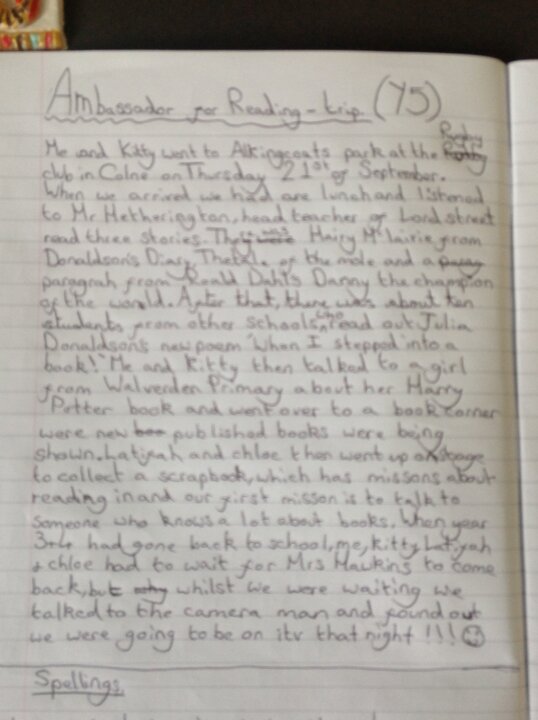 Ambassador for Reading - trip. (Y5)
Rugby
Me and Kitty went to Alkingcoats park at the
club in Colne on Thursday 21st of September.
When we arrived we had are lunch and listened
to Mr Hetherington, head teacher of Lord street
read three stories. They were Hairy Mclairie from
Donaldson's Diary, The of the mole and a
paragrah from Roald Dahl's Danny the champion
of the world. After that, there was about ten
students from other schools, who read out Julia
Donaldson's new poem "When I stepped into a
book!" Me and Kitty then talked to a girl
from Walverden Primary about her Harry
Potter book and went over to a book corner
were new boo published books were being
shown. Latiyah and chloe then went up on stage
to collect a scrapbook, which has missons about
reading in and our first misson is to talk to
someone who knows a lot about books. When year
3+4 had gone back to school, me, Kitty, Latiyah
+ chloe had to wait for Mrs Hawkins to come
back, but whilst we were waiting we
talked to the camera man and found out
we were going to be on itv that night !!!
Spellings.